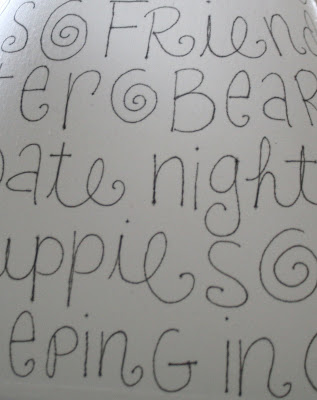 s FRien
ter BeaR
Date night
uppies
eeping in